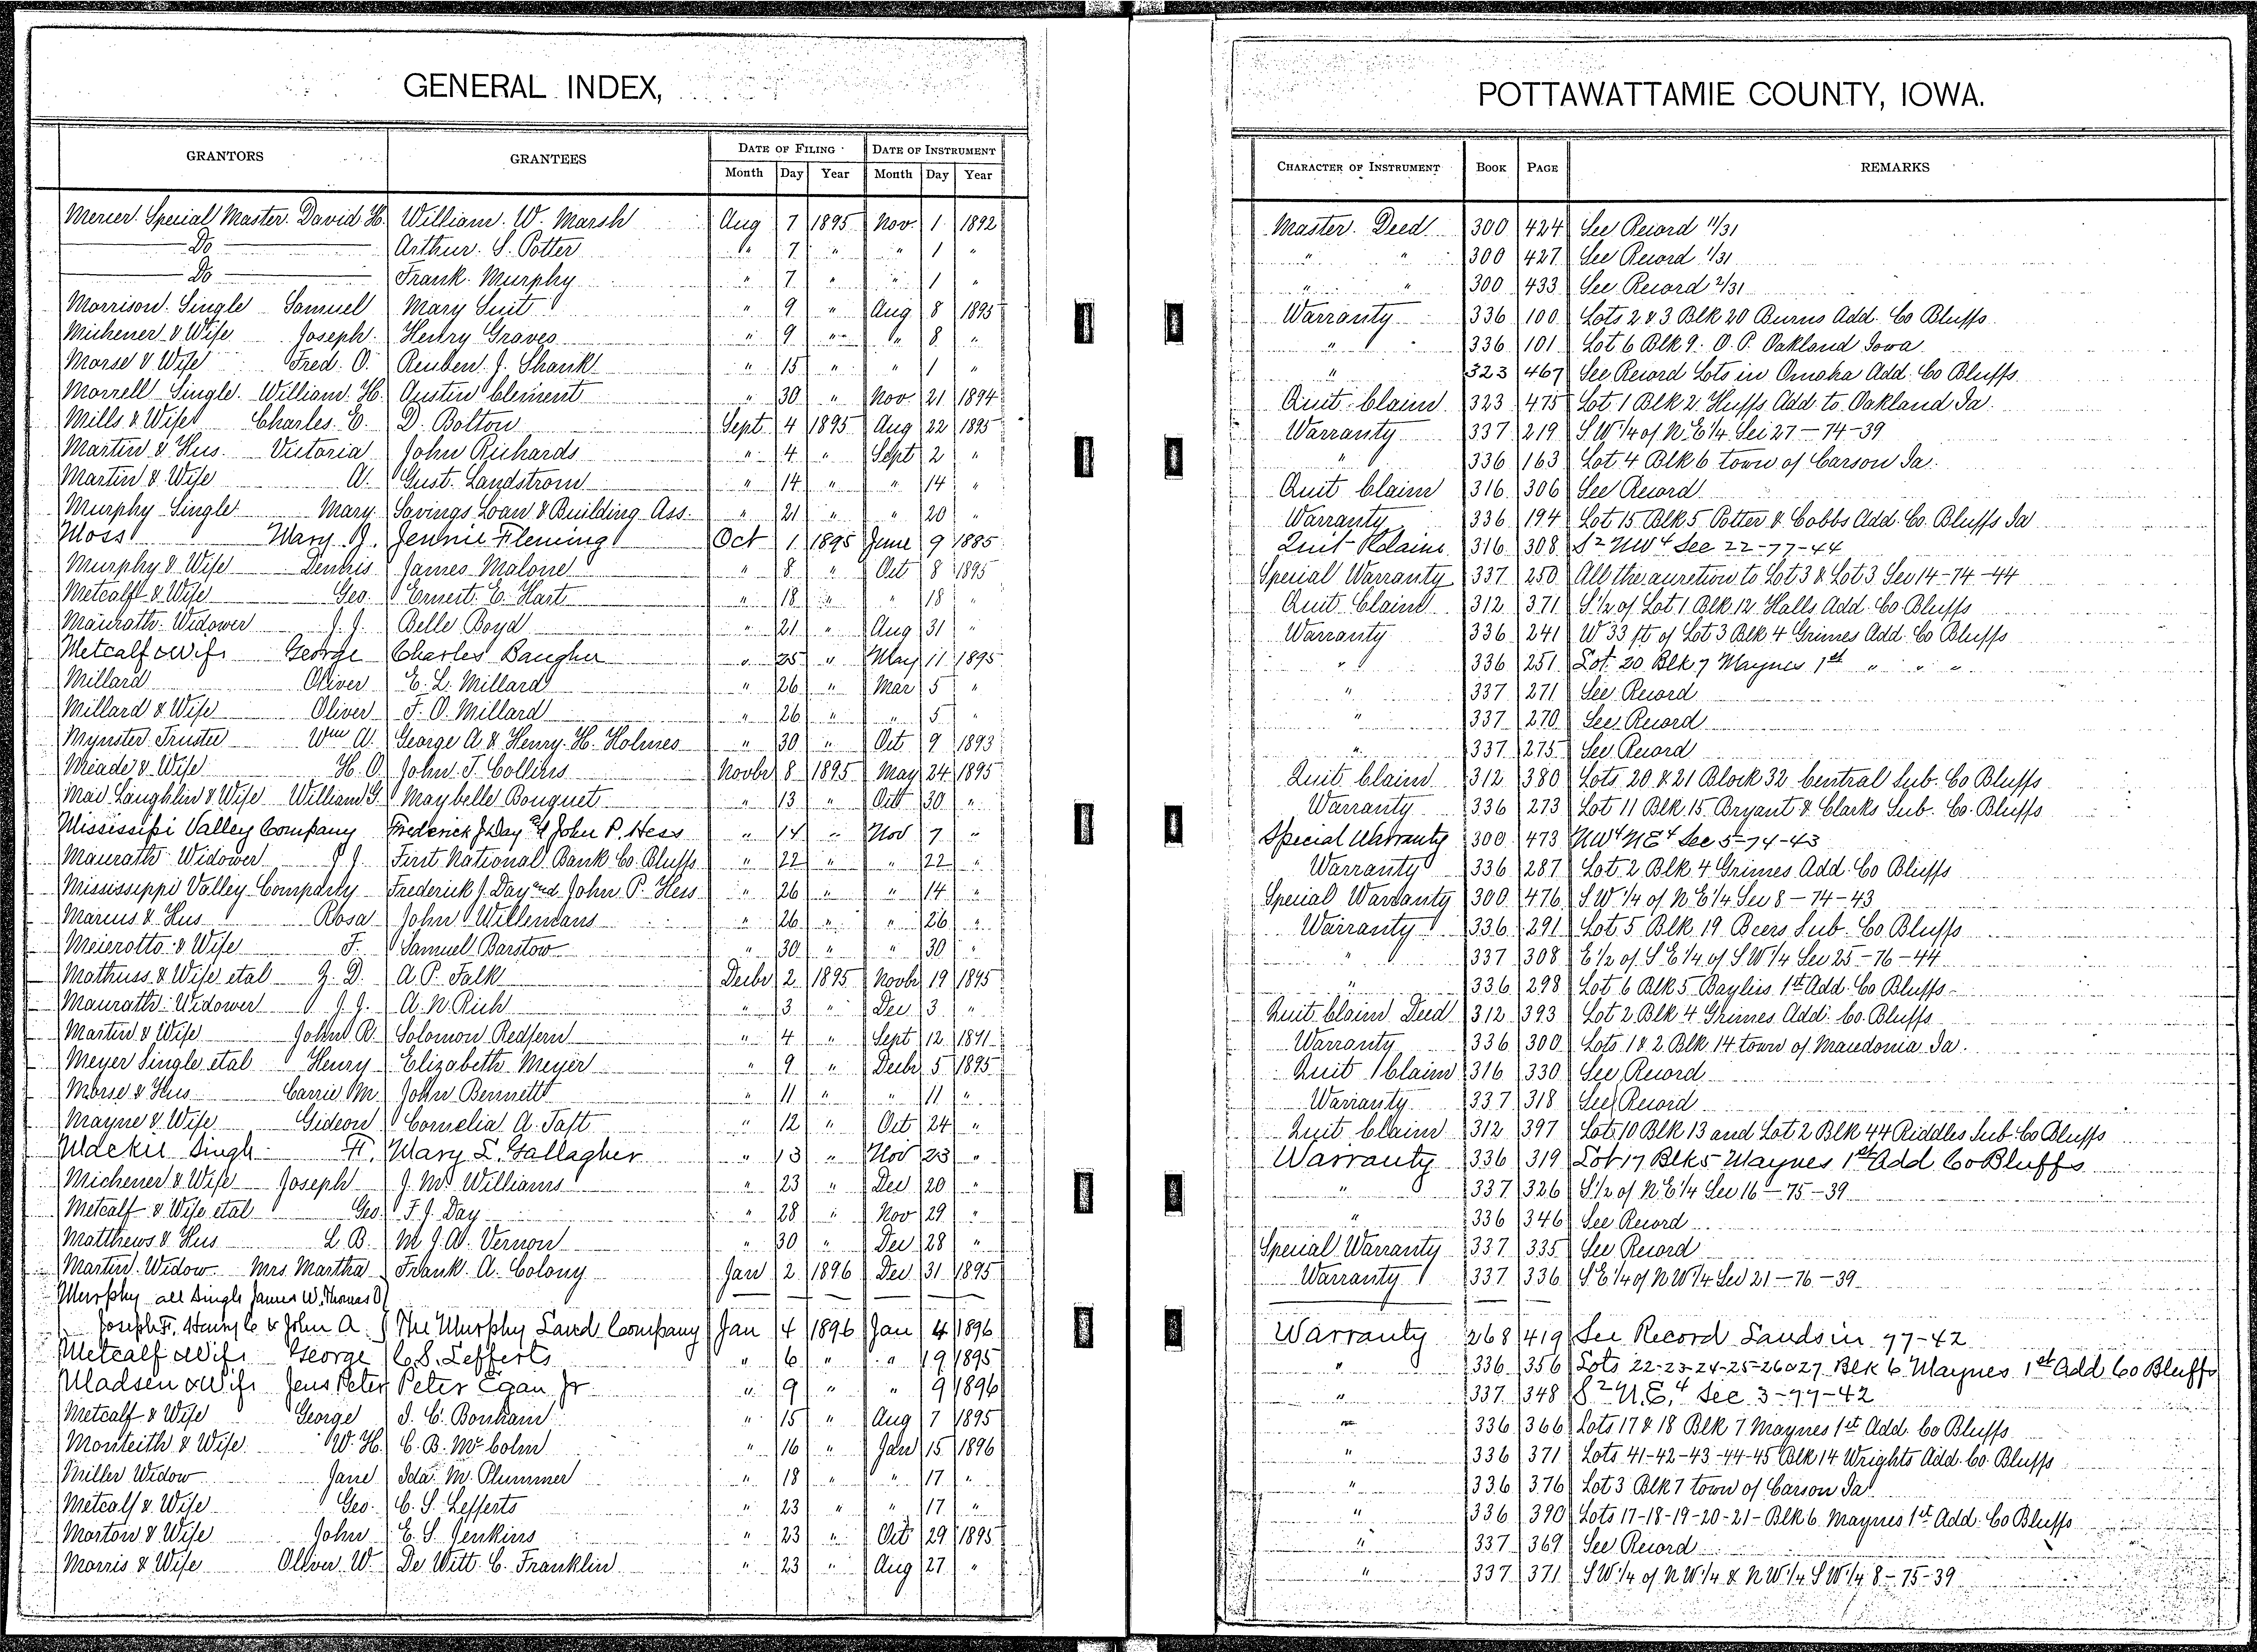 GENERAL INDEX,
GRANTORS GRANTEES DATE OF FILING DATE OF INSTRUMENT
Month Day Year Month Day Year
Mercer Special Master David H. William W. Marsh Aug 7 1895 Nov. 1 1892
Do Arthur S. Potter " 7 " " 1 "
Do Frank Murphy " 7 " " 1 "
Morrison Single Samuel Mary Suit " 9 " Aug 8 1895
Michener & Wife Joseph Henry Graves " 9 " " 8 "
Morse & Wife Fred. O. Reuben J. Shank " 15 " " 1 "
Morrell Single William H. Austin Clement " 30 " Nov 21 1894
Mills & Wife Charles E. D. Bolton Sept 4 1895 Aug 22 1895
Martin & Hus. Victoria John Richards " 4 " Sept 2 "
Martin & Wife A. Gust. Landstrom " 14 " " 14 "
Murphy Single Mary Savings Loan & Building Ass. " 21 " " 20 "
Moss Mary J. Jennie Fleming Oct 1 1895 June 9 1885
Murphy & Wife Dennis James Malone " 8 " Oct 8 1895
Metcalf & Wife Geo. Ernest E. Hart " 18 " " 18 "
Maurath Widower J. J. Belle Boyd " 21 " Aug 31 "
Metcalf & Wife George Charles Baugher " 25 " May 11 1895
Millard Oliver E. L. Millard " 26 " Mar 5 "
Millard & Wife Oliver F. O. Millard " 26 " " 5 "
Mynster Trustee Wm A. George A & Henry H. Holmes " 30 " Oct 9 1893
Meade & Wife H. O. John T. Collins Novbr 8 1895 May 24 1895
Mac Laughlin & Wife William G. Maybelle Bouquet " 13 " Oct 30 "
Mississipi Valley Company Frederick J Day & John P. Hess " 14 " Nov 7 "
Maurath Widower J J. First National Bank Co. Bluffs " 22 " " 22 "
Mississippi Valley Company Frederick J. Day and John P. Hess " 26 " " 14 "
Marcus & Hus Rosa John Willemans " 26 " " 26 "
Meierotto & Wife F. Samuel Barstow " 30 " " 30 "
Mathuss & Wife etal G. D. A. P. Falk Decbr 2 1895 Novbr 19 1895
Maurath Widower J. J. A. N. Rich " 3 " Dec 3 "
Martin & Wife John R. Solomon Redfern " 4 " Sept 12 1891
Meyer Single etal Henry Elizabeth Meyer " 9 " Decbr 5 1895
Morse & Hus Carrie M. John Bennett " 11 " " 11 "
Mayne & Wife Gideon Cornelia A. Taft " 12 " Oct 24 "
Mackie Single H. Mary L. Gallagher " 13 " Nov 23 "
Michener & Wife Joseph J. M. Williams " 23 " Dec 20 "
Metcalf & Wife etal Geo. F. J. Day " 28 " Nov 29 "
Matthews & Hus L. B. M. J. A. Vernon " 30 " Dec 28 "
Martin Widow Mrs. Martha Frank A. Colony Jan 2 1896 Dec 31 1895
Murphy all Single James W, Thomas O
Joseph F, Henry C & John A. The Murphy Land Company Jan 4 1896 Jan 4 1896
Metcalf & Wife George C. S. Lefferts " 6 " " 19 1895
Madsen & Wife Jens Peter Peter Egan Jr. " 9 " " 9 1896
Metcalf & Wife George I. C. Bonham " 15 " Aug 7 1895
Monteith & Wife W. H. C. B. McColm " 16 " Jan 15 1896
Miller Widow Jane Ida M. Plummer " 18 " " 17 "
Metcalf & Wife Geo. C. S. Lefferts " 23 " " 17 "
Morton & Wife John E. S. Jenkins " 23 " Oct 29 1895
Morris & Wife Oliver W. De Witt C. Franklin " 23 " Aug 27 "
POTTAWATTAMIE COUNTY, IOWA.
CHARACTER OF INSTRUMENT BOOK PAGE REMARKS
Master Deed 300 424 See Record 11/31
" " 300 427 See Record 1/31
" " 300 433 See Record 2/31
Warranty 336 100 Lots 2 & 3 Blk 20 Burns Add. Co Bluffs
" 336 101 Lot 6 Blk 9. O. P. Oakland Iowa
" 323 467 See Record Lots in Omaha Add. Co Bluffs
Quit Claim 323 475 Lot 1 Blk 2 Huffs Add. to Oakland Ia.
Warranty 337 219 S W 1/4 of N. E 1/4 Sec 27-74-39
" 336 163 Lot 4 Blk 6 town of Carson Ia.
Quit Claim 316 306 See Record
Warranty 336 194 Lot 15 Blk 5 Potter & Cobbs Add. Co. Bluffs Ia
Quit Claim 316 308 S2 NW4 Sec 22-77-44
Special Warranty 337 250 All the accretion to Lot 3 & Lot 3 Sec 14-74-44
Quit Claim 312 371 S. 1/2 of Lot 1 Blk 12 Halls Add. Co Bluffs
Warranty 336 241 W 33 ft of Lot 3 Blk 4 Grimes Add. Co Bluffs
" 336 251 Lot 20 Blk 7 Maynes 1st " " "
" 337 271 See Record
" 337 270 See Record
" 337 275 See Record
Quit Claim 312 380 Lots 20 & 21 Block 32 Central Sub. Co Bluffs
Warranty 336 273 Lot 11 Blk 15 Bryant & Clarks Sub. Co. Bluffs
Special Warranty 300 473 NW4 NE4 Sec 5-74-43
Warranty 336 287 Lot 2 Blk 4 Grimes Add. Co Bluffs
Special Warranty 300 476 S. W 1/4 of N. E 1/4 Sec 8-74-43
Warranty 336 291 Lot 5 Blk 19 Beers Sub. Co Bluffs
" 337 308 E 1/2 of S E 1/4 of S W 1/4 Sec 25-76-44
" 336 298 Lot 6 Blk 5 Bayliss 1st Add. Co Bluffs
Quit Claim Deed 312 393 Lot 2 Blk 4 Grimes Add. Co. Bluffs
Warranty 336 300 Lots 1 & 2 Blk 14 town of Macedonia Ia.
Quit Claim 316 330 See Record
Warranty 337 318 See Record
Quit Claim 312 397 Lot 10 Blk 13 and Lot 2 Blk 44 Riddles Sub. Co Bluffs
Warranty 336 319 Lot 17 Blk 5 Maynes 1st Add Co Bluffs
" 337 326 S 1/2 of N E 1/4 Sec 16-75-39
" 336 346 See Record
Special Warranty 337 335 See Record
Warranty 337 336 S E 1/4 of N W 1/4 Sec 21-76-39
Warranty 268 419 See Record Lands in 77-42
" 336 356 Lots 22-23-24-25-26 & 27 Blk 6 Maynes 1st Add Co Bluffs
" 337 348 S2 N.E.4 Sec 3-77-42
" 336 366 Lots 17 & 18 Blk 7 Maynes 1st Add. Co Bluffs
" 336 371 Lots 41-42-43-44-45 Blk 14 Wrights Add. Co. Bluffs
" 336 376 Lot 3 Blk 7 town of Carson Ia
" 336 390 Lots 17-18-19-20-21-Blk 6 Maynes 1st Add. Co Bluffs
" 337 369 See Record
" 337 371 S W 1/4 of N W 1/4 & N W 1/4 S W 1/4 8-75-39